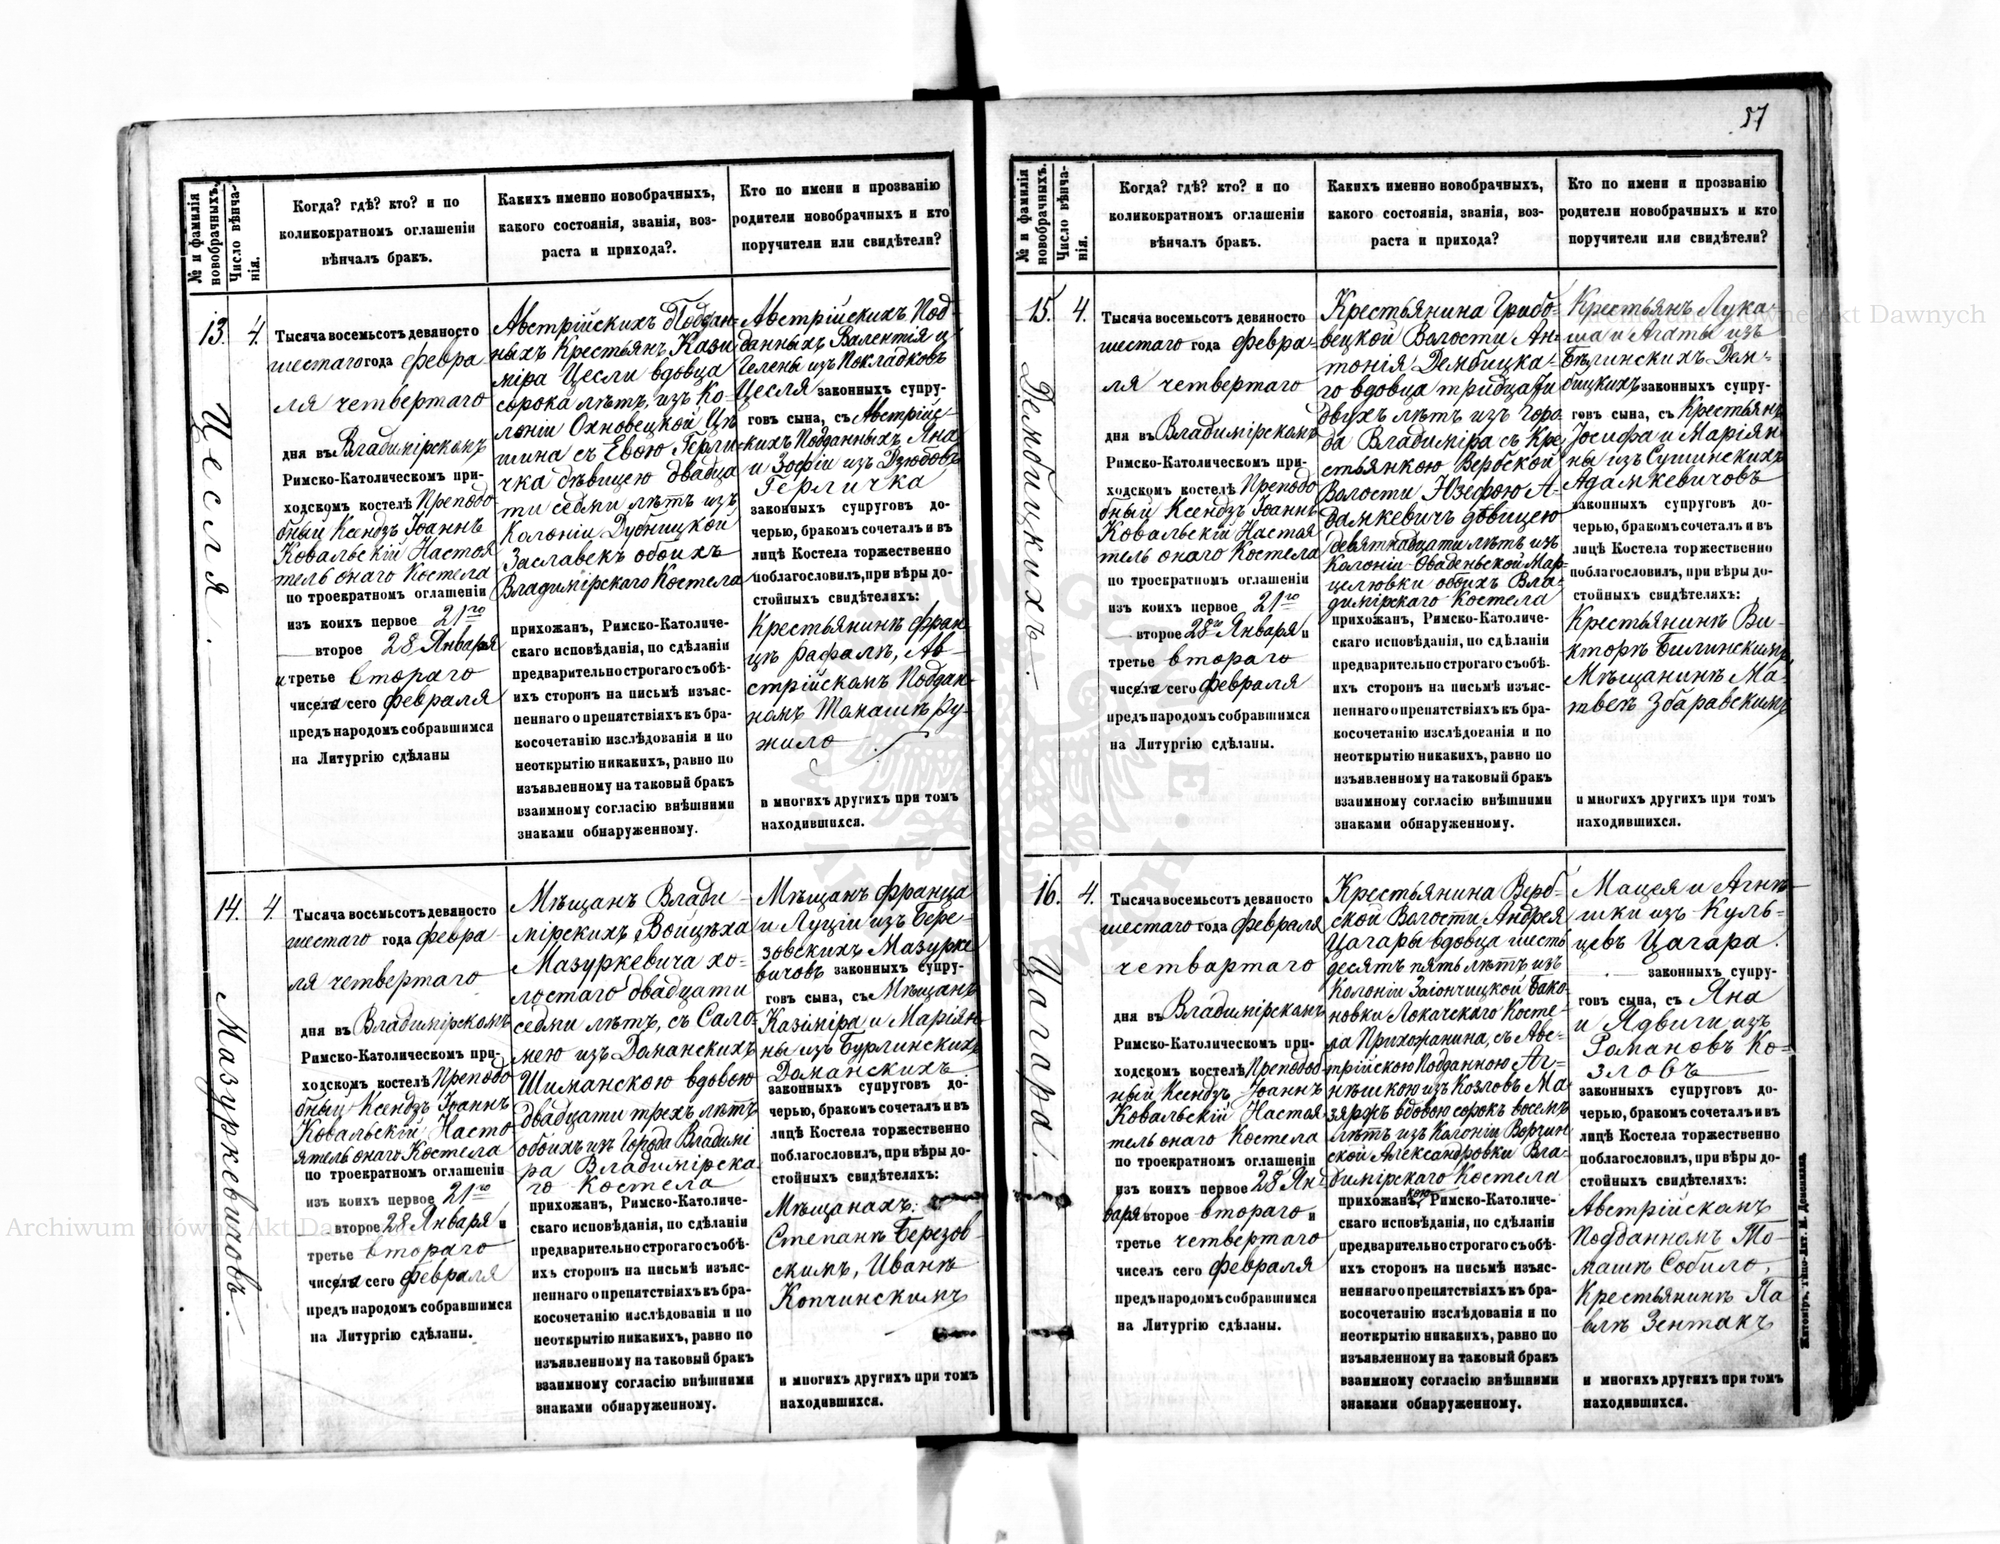 57
№ и фамилія новобрачныхъ.
Число вѣнчанія.
Когда? гдѣ? кто? и по
коликократномъ оглашеніи
вѣнчалъ бракъ.
Какихъ именно новобрачныхъ,
какого состоянія, званія, воз-
раста и прихода?.
Кто по имени и прозванію
родители новобрачныхъ и кто
поручители или свидѣтели?
13.
Цесля.
4.
Тысяча восемьсотъ девяносто
шестаго года февра
ля четвертаго
дня въ Владимірскомъ
Римско-Католическомъ при-
ходскомъ костелѣ Преподо
бный Ксендзъ Іоаннъ
Ковальскій Настоя
тель онаго Костела
по троекратномъ оглашеніи
изъ коихъ первое 21го
второе 28 Января
и третье втораго
числа сего февраля
предъ народомъ собравшимся
на Литургію сдѣланы
Австрійскихъ Поддан-
ныхъ Крестьянъ, Кази
міра Цесли вдовца
сорока лѣтъ, изъ Ко-
лоніи Охновецкой
шина съ Евою Герли
чка дѣвицею двадца
ти седми лѣтъ изъ
Колоніи Дубницкой
Заславекъ обоихъ
Владимірскаго Костела
прихожанъ, Римско-Католиче-
скаго исповѣданія, по сдѣланіи
предварительно строгаго съ обѣ-
ихъ сторонъ на письмѣ изъяс-
неннаго о препятствіяхъ къ бра-
косочетанію изслѣдованія и по
неоткрытію никакихъ, равно по
изъявленному на таковый бракъ
взаимному согласію внѣшними
знаками обнаруженному.
Австрійскихъ Под-
данныхъ Валентія и
Гелены изъ Покладковъ
Цесля законныхъ супру-
говъ сына, съ Австрійс-
кихъ Подданныхъ Яна
и Зофіи изъ Дзюбовъ
Герличка
законныхъ супруговъ до-
черью, бракомъ сочеталъ и въ
лицѣ Костела торжественно
поблагословилъ, при вѣры до-
стойныхъ свидѣтеляхъ:
Крестьянинѣ Фран-
цѣ Рафалѣ, Ав-
стрійскомъ Поддан-
номъ Томашѣ Ду-
жило
и многихъ другихъ при томъ
находившихся.
14.
Мазуркевичовъ.
4
Тысяча восемьсотъ девяносто
шестаго года февра-
ля четвертаго
дня въ Владимірскомъ
Римско-Католическомъ при-
ходскомъ костелѣ Преподо
бный Ксендзъ Іоаннъ
Ковальскій Насто
ятель онаго Костела
по троекратномъ оглашеніи
изъ коихъ первое 21го
второе 28 Января и
третье втораго
числа сего февраля
предъ народомъ собравшимся
на Литургію сдѣланы.
Мѣщанъ Влади-
мірскихъ Войцѣха
Мазуркевича хо-
лостаго двадцати
седми лѣтъ, съ Сало-
меею изъ Доманскихъ
Шиманскою вдовою
двадцати трехъ лѣтъ
обоихъ изъ Города Владимі
ра Владимірска
го Костела
прихожанъ, Римско-Католиче-
скаго исповѣданія, по сдѣланіи
предварительно строгаго съ обѣ-
ихъ сторонъ на письмѣ изъяс-
неннаго о препятствіяхъ къ бра-
косочетанію изслѣдованія и по
неоткрытію никакихъ, равно по
изъявленному на таковый бракъ
взаимному согласію внѣшними
знаками обнаруженному.
Мѣщанъ Франца
и Луціи изъ Бере-
зовскихъ Мазурке
вичовъ законныхъ супру-
говъ сына, съ Мѣщанъ
Казиміра и Маріян-
ны изъ Бурлинскихъ
Доманскихъ
законныхъ супруговъ до-
черью, бракомъ сочеталъ и въ
лицѣ Костела торжественно
поблагословилъ, при вѣры до-
стойныхъ свидѣтеляхъ:
Мѣщанахъ:
Степанѣ Березов-
скимъ, Иванѣ
Копчинскимъ
и многихъ другихъ при томъ
находившихся.
№ и фамилія новобрачныхъ.
Число вѣнчанія.
Когда? гдѣ? кто? и по
коликократномъ оглашеніи
вѣнчалъ бракъ.
Какихъ именно новобрачныхъ,
какого состоянія, званія, воз-
раста и прихода?
Кто по имени и прозванію
родители новобрачныхъ и кто
поручители или свидѣтели?
15.
Дембицкихъ.
4.
Тысяча восемьсотъ девяносто
шестаго года февра-
ля четвертаго
дня въ Владимірскомъ
Римско-Католическомъ при-
ходскомъ костелѣ Преподо
бный Ксендзъ Іоаннъ
Ковальскій Настоя
тель онаго Костела
по троекратномъ оглашеніи
изъ коихъ первое 21го
второе 28го Января и
третье втораго
числа сего февраля
предъ народомъ собравшимся
на Литургію сдѣланы.
Крестьянина Грибо-
вецкой Волости Ан-
тонія Дембицка-
го вдовца тридцати
двухъ лѣтъ изъ Горо
да Владиміра съ Кре
стьянкою Вербской
Волости Юзефою А-
дамкевичъ дѣвицею
девятнадцати лѣтъ изъ
Колоніи Оваденьской Мар-
целювки обоихъ Вла-
димірскаго Костела
прихожанъ, Римско-Католиче-
скаго исповѣданія, по сдѣланіи
предварительно строгаго съ обѣ-
ихъ сторонъ на письмѣ изъяс-
неннаго о препятствіяхъ къ бра-
косочетанію изслѣдованія и по
неоткрытію никакихъ, равно по
изъявленному на таковый бракъ
взаимному согласію внѣшними
знаками обнаруженному.
Крестьянъ Лука-
ша и Агаты изъ
Бѣлинскихъ Дем-
бицкихъ законныхъ супру-
говъ сына, съ Крестьянъ
Іосифа и Маріян-
ны изъ Сушинскихъ
Адамкевичовъ
законныхъ супруговъ до-
черью, бракомъ сочеталъ и въ
лицѣ Костела торжественно
поблагословилъ, при вѣры до-
стойныхъ свидѣтеляхъ:
Крестьянинѣ Ви-
кторѣ Билинскимъ,
Мѣщанинѣ Ма-
твеѣ Збаравскимъ
и многихъ другихъ при томъ
находившихся.
16.
Цагара.
4.
Тысяча восемьсотъ девяносто
шестаго года февраля
четвартаго
дня въ Владимірскомъ
Римско-Католическомъ при-
ходскомъ костелѣ Преподоб-
ный Ксендзъ Іоаннъ
Ковальскій Настоя
тель онаго Костела
по троекратномъ оглашеніи
изъ коихъ первое 28 Ян-
варя второе втораго и
третье четвертаго
чиселъ сего февраля
предъ народомъ собравшимся
на Литургію сдѣланы.
Крестьянина Верб-
ской Волости Андрея
Цагары вдовца шесть
десятъ пять лѣтъ изъ
Колоніи Заіончицкой Бако-
новки Локачскаго Косте-
ла Прихожанина, съ Авс-
трійскою Подданною Аг-
нѣшкою изъ Козловъ Ма
зярфъ вдовою сорокъ восемь
лѣтъ изъ Колоніи Ворчин
ской Александровки Вла-
димірскаго Костела
прихожанкою, Римско-Католиче-
скаго исповѣданія, по сдѣланіи
предварительно строгаго съ обѣ-
ихъ сторонъ на письмѣ изъяс-
неннаго о препятствіяхъ къ бра-
косочетанію изслѣдованія и по
неоткрытію никакихъ, равно по
изъявленному на таковый бракъ
взаимному согласію внѣшними
знаками обнаруженному.
Мацея и Агнѣ-
шки изъ Куль-
цевъ Цагара.
законныхъ супру-
говъ сына, съ Яна
и Ядвиги изъ
Романовъ Ко-
зловъ
законныхъ супруговъ до-
черью, бракомъ сочеталъ и въ
лицѣ Костела торжественно
поблагословилъ, при вѣры до-
стойныхъ свидѣтеляхъ:
Австрійскомъ
Подданномъ То-
машѣ Собило,
Крестьянинѣ Па
влѣ Зентакъ
и многихъ другихъ при томъ
находившихся.
Житоміръ, Типо-Лит. М. Дененмана.
Archiwum Główne Akt Dawnych
Archiwum Główne Akt Dawnych